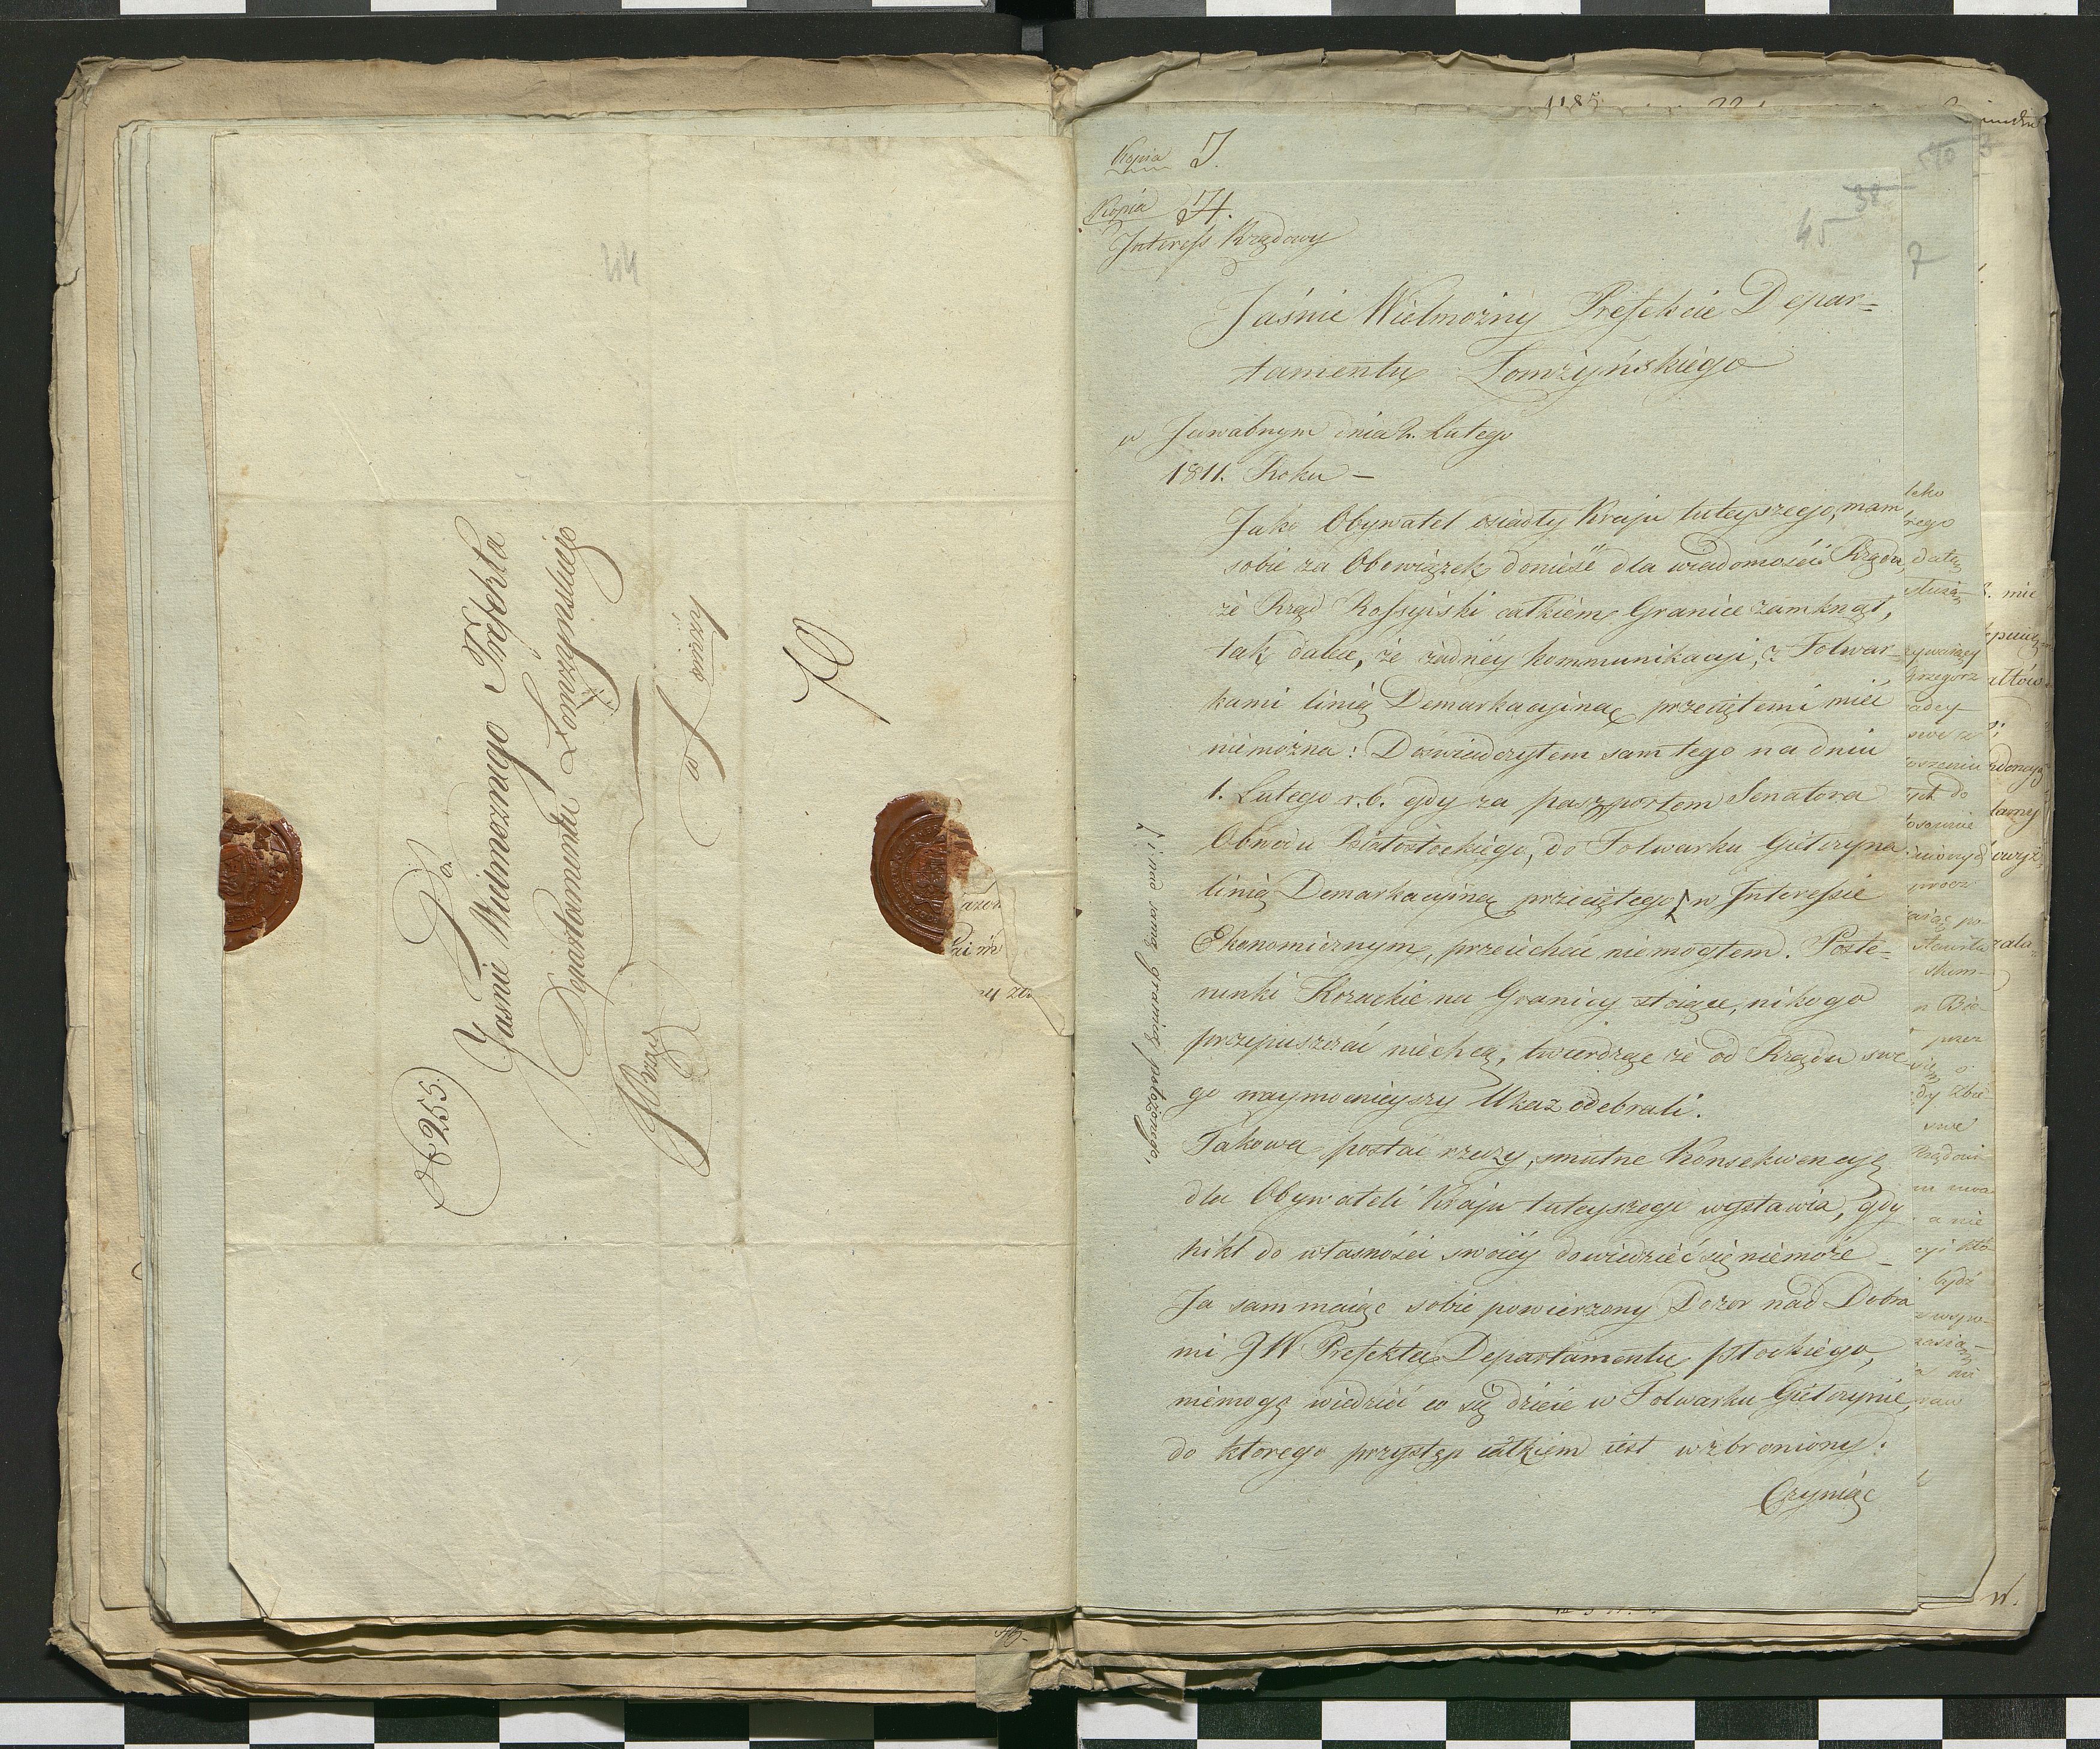 44
Do
Jaśnie Wielmożnego Prefekta
Departamentu Łomżynskiego
w
№ 255.
Kopia J.
Kopia
Interess Rządowy
45
38
7
Jaśnie Wielmożny Prefekcie Depar=
tamentu Łomżyńskiego
w Jedwabnym dnia 2. Lutego
1811. Roku —
Jako Obywatel osiadły Kraju tuteyszego, mam
sobie za Obowiązek donieść dla wiadomości Rządu,
że Rząd Rossyiski całkiem Granice zamknął,
tak dalece, że żadnéy kommunikacyi, z Folwar-
kami linią Demarkacyiną przeciętemi mieć
niemożna: Doświadczyłem sam tego na dniu
1. Lutego r.b. gdy za paszportem Senatora
Obwodu Białostockiego, do Folwarku Giełczyna
linią Demarkacyiną przeciętego, w Interessie
Ekonomicznym, przeiechać niemogłem. Poste-
runki Kozackie na Granicy stoiące, nikogo
przepuszczać niechcą, twierdząc że od Rządu swe
go naymocnieyszy Ukaz odebrali.
Takowa postać rzeczy, smutne Konsekwencye
dla Obywateli Kraju tuteyszego wystawia, gdy
nikt do własności swoiéy dowiedzieć się niemoże —
Ja sam maiąc sobie powierzony Dozor nad Dobra
mi JW Prefekta Departamentu Płockiego,
niemogę wiedzieć co się dzieie w Folwarku Giełczynie,
do ktorego przystęp całkiem iest wzbroniony.
Czyniąc
i nad samą granicą położonego,